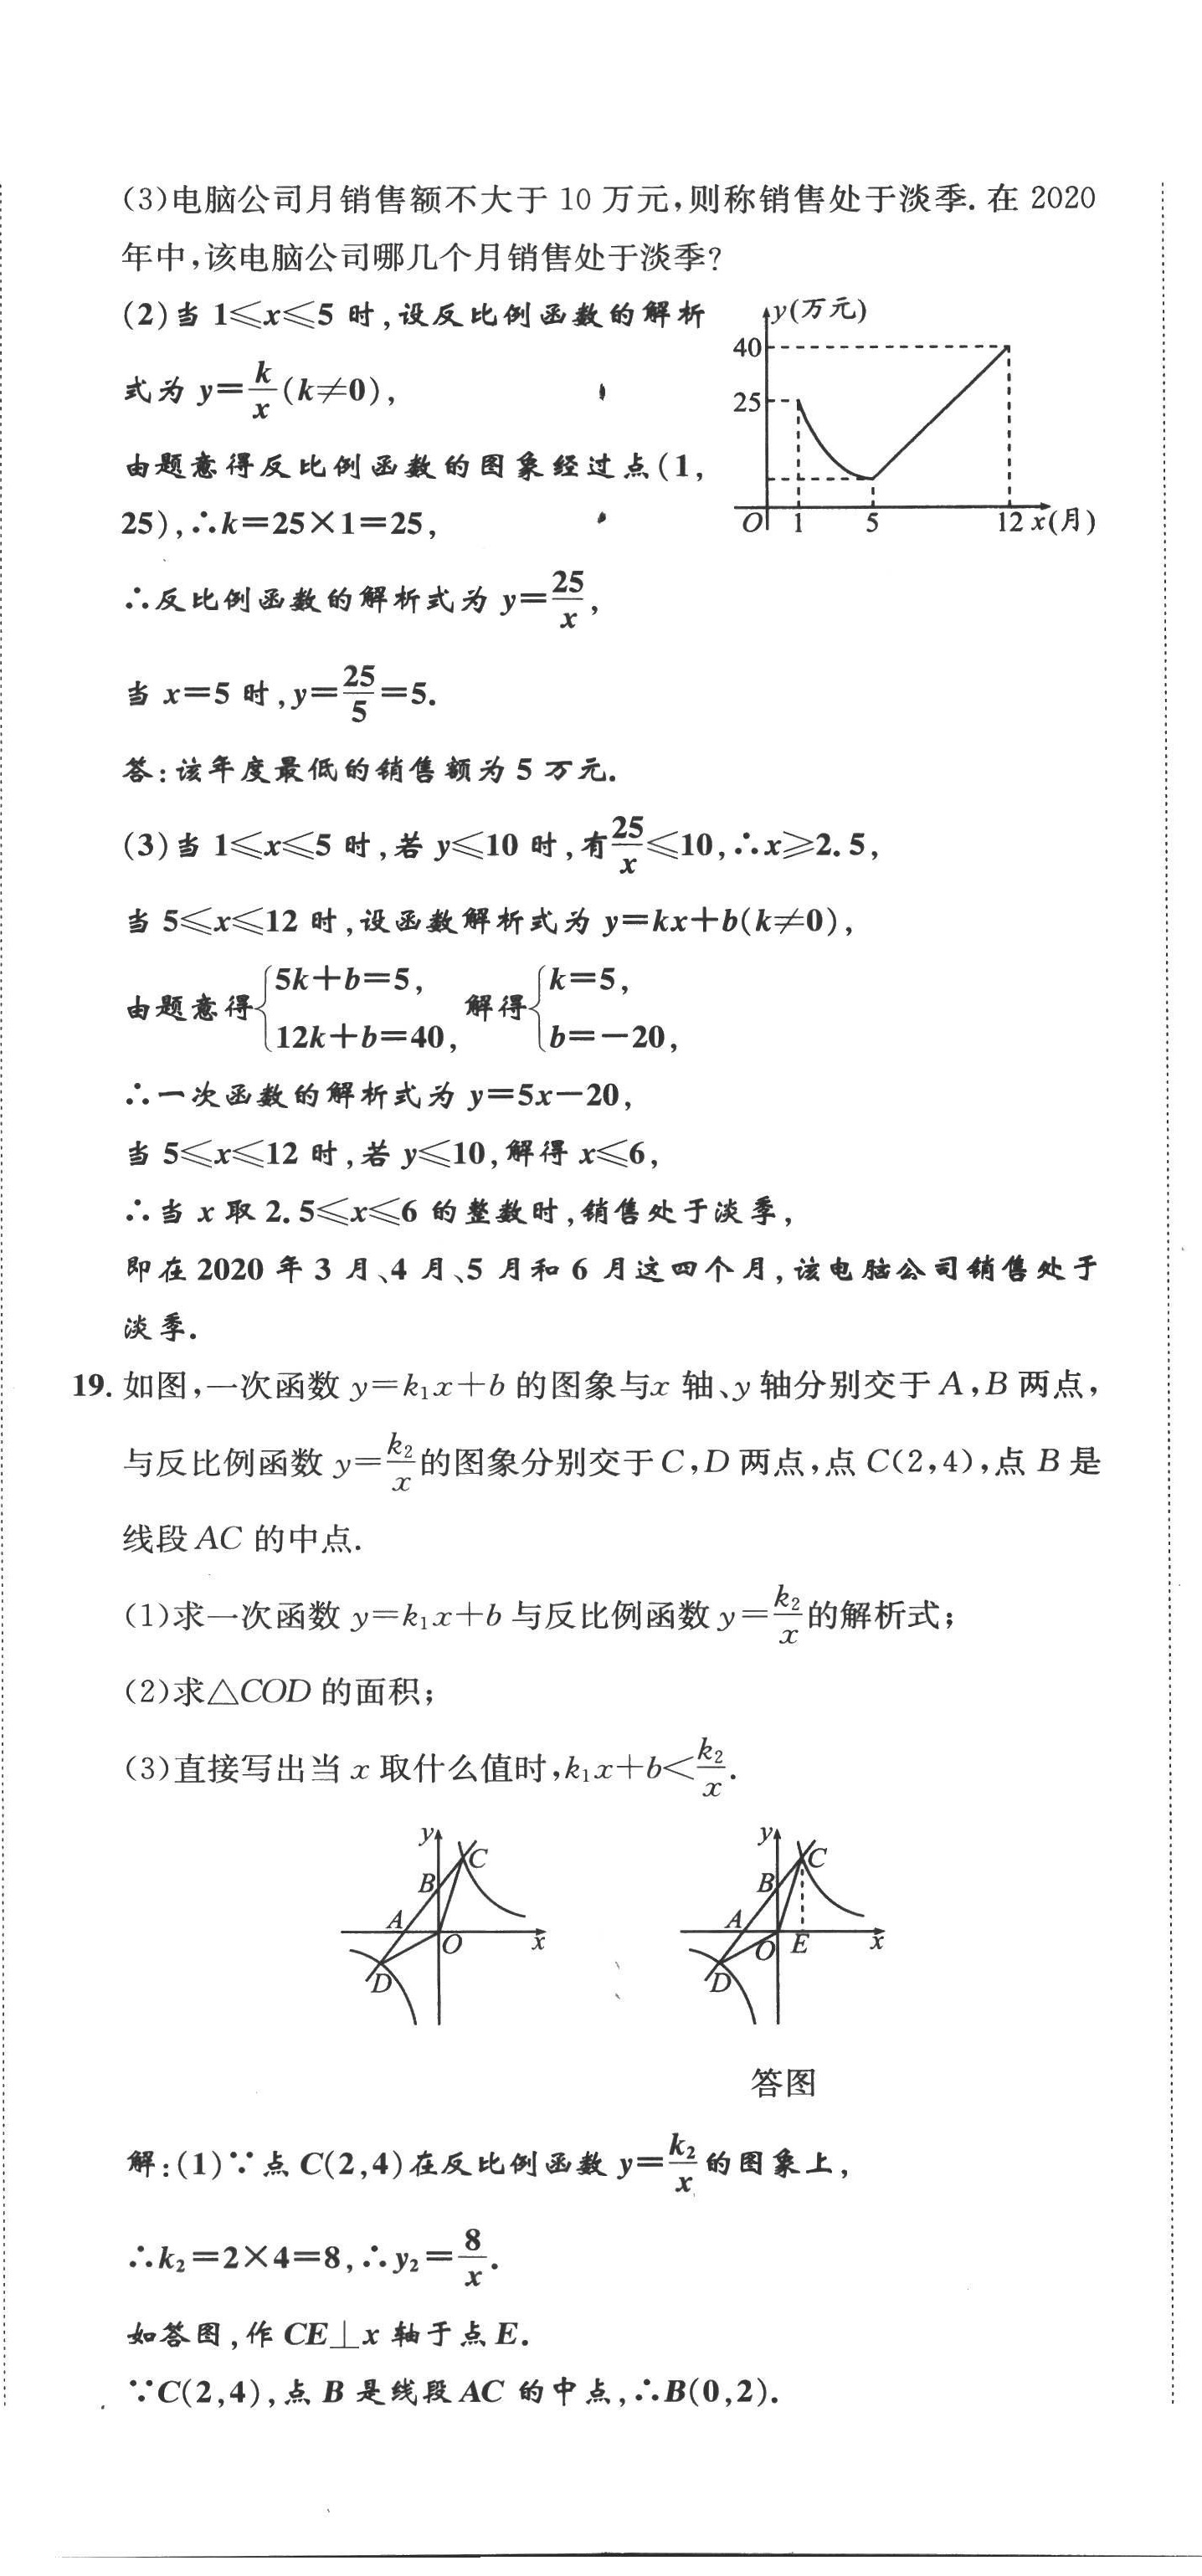 (3)电脑公司月销售额不大于 10 万元,则称销售处于淡季. 在 2020
年中,该电脑公司哪几个月销售处于淡季?
(2)当 1≤x≤5 时,设反比例函数的解析
式为 y=k/x(k≠0),
由题意得反比例函数的图象经过点(1,
25),∴k=25×1=25,
∴反比例函数的解析式为 y=25/x,
当 x=5 时,y=25/5=5.
答:该年度最低的销售额为 5 万元.
y(万元)
40
25
O 1 5 12 x(月)
(3)当 1≤x≤5 时,若 y≤10 时,有25/x≤10,∴x≥2.5,
当 5≤x≤12 时,设函数解析式为 y=kx+b(k≠0),
由题意得{5k+b=5, 12k+b=40, 解得{k=5, b=-20,
∴一次函数的解析式为 y=5x-20,
当 5≤x≤12 时,若 y≤10,解得 x≤6,
∴当 x 取 2.5≤x≤6 的整数时,销售处于淡季,
即在 2020 年 3 月、4 月、5 月和 6 月这四个月,该电脑公司销售处于
淡季.
19. 如图,一次函数 y=k₁x+b 的图象与x 轴、y 轴分别交于 A,B 两点,
与反比例函数 y=k₂/x的图象分别交于 C,D 两点,点 C(2,4),点 B 是
线段 AC 的中点.
(1)求一次函数 y=k₁x+b 与反比例函数 y=k₂/x的解析式;
(2)求△COD 的面积;
(3)直接写出当 x 取什么值时,k₁x+b<k₂/x.
y C B A O x D
y C B A O E x D
答图
解:(1)∵点 C(2,4)在反比例函数 y=k₂/x的图象上,
∴k₂=2×4=8,∴y₂=8/x.
如答图,作 CE⊥x 轴于点 E.
∵C(2,4),点 B 是线段 AC 的中点,∴B(0,2).